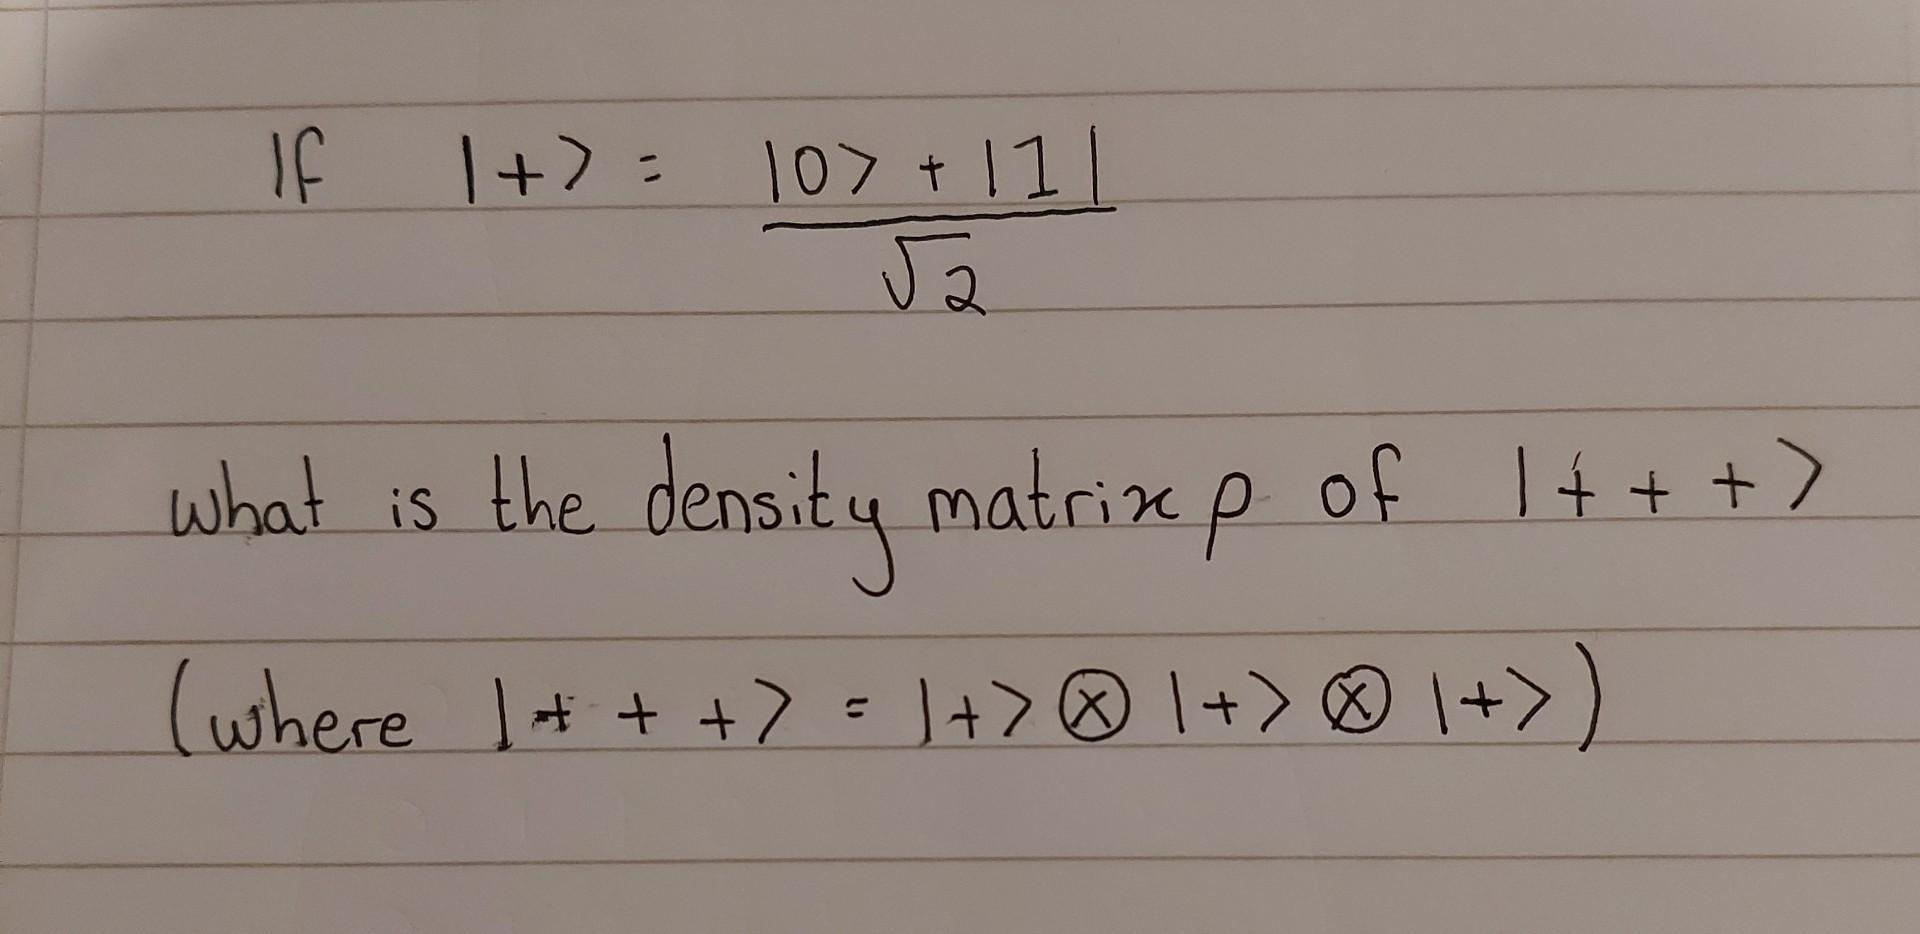 If |+> = |0> + |1|
√2
what is the density matrix ρ of |+ + +>
(where |+ + +> = |+> ⊗ |+> ⊗ |+>)